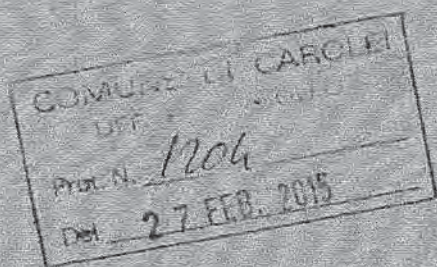 COMUNE DI CAROLEI
UFF
Prot. N. 1204
Del 27 FEB. 2015